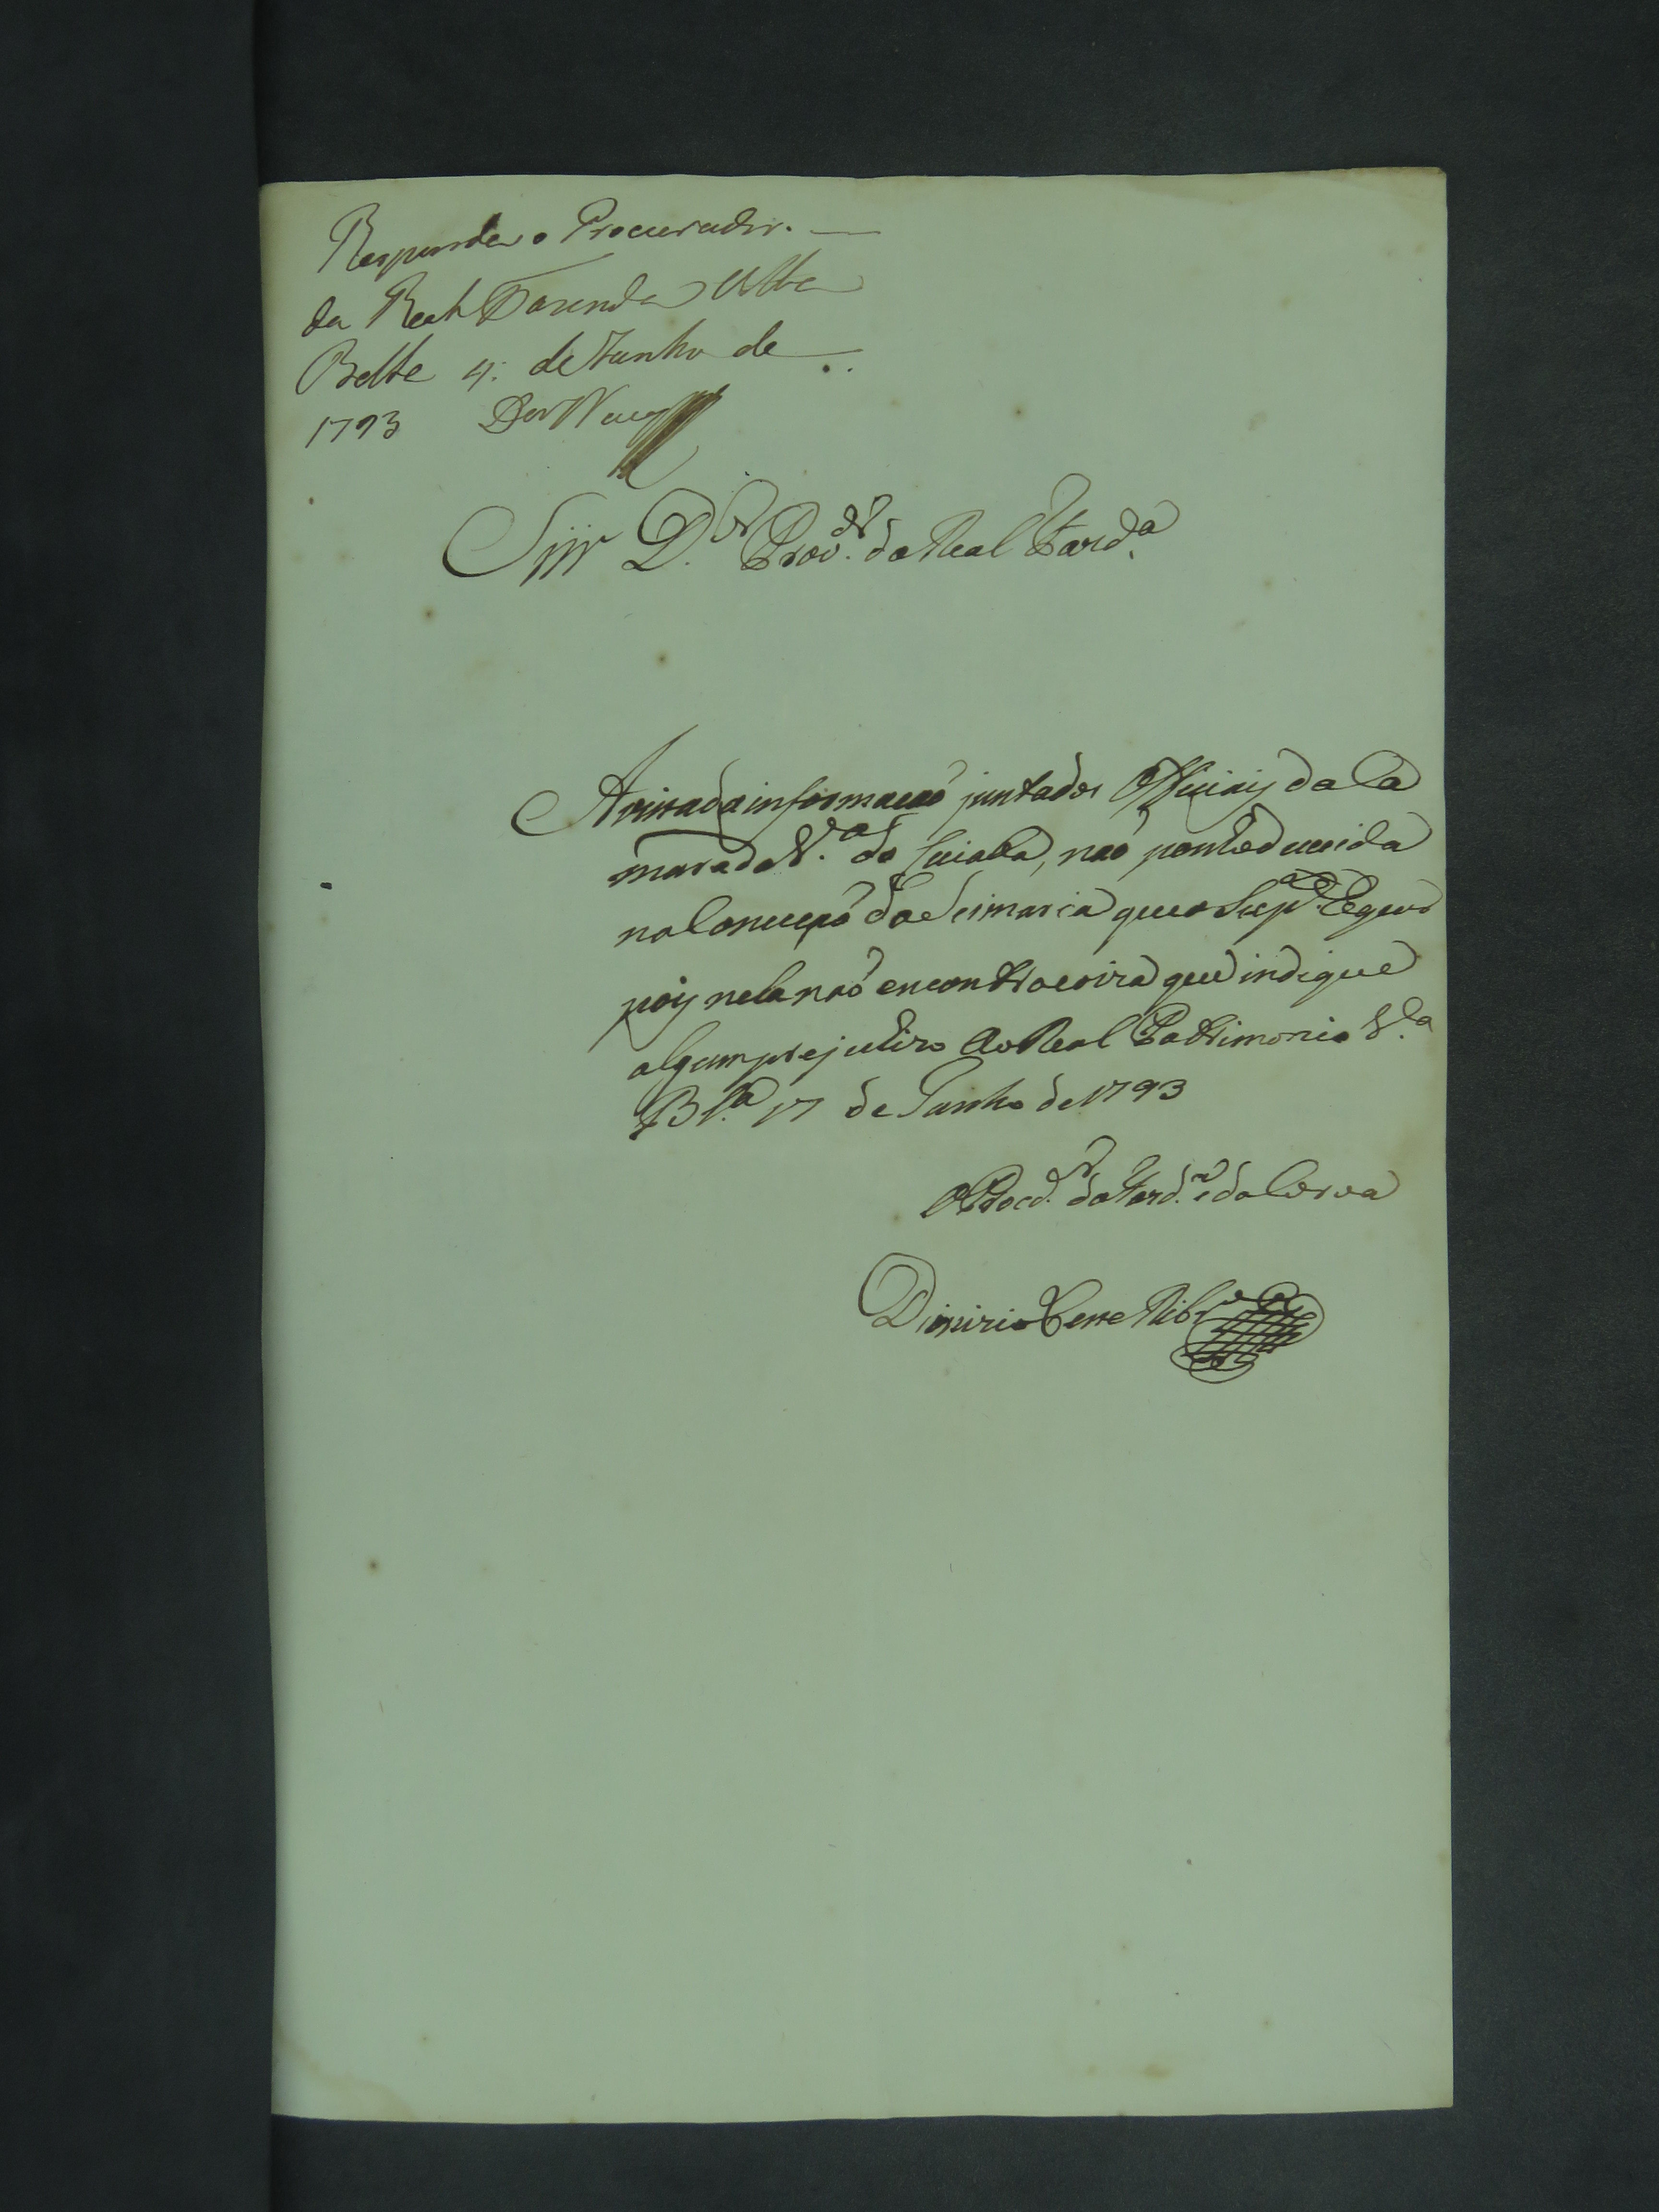 Responda o Procurador.
da Real Fazenda Villa
Bella 4: de Junho de
1793
Snr D.or Prov.dor da Real Fazd.a
A vista da informaçaõ junta dos Officiais da Ca
mara da V.a do Cuiaba, naõ ponho duvida
na Conceçaõ da Seimaria que o Sup.e Requer
pois nela naõ encontro coiza que indique
algum prejuizo ao Real Patrimonio V.a
B.la 17 de Junho de 1793
O Procd.or da Fazd.a e da Coroa
Dionizio